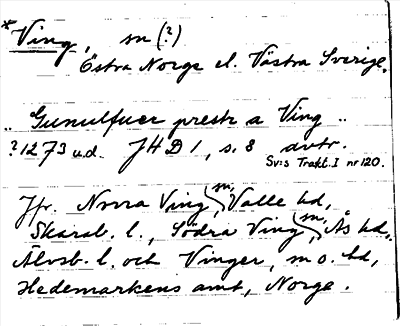 *Ving, sn (?)
Östra Norge el. Västra Sverige.
.. Gunulfuer prestr a Ving ..
?1273 u.d. JHD 1, s. 8 avtr.
Sv:s Trakt. I nr 120.
Jfr. Norra Ving, sn, Valle hd,
Skarab. l., Södra Ving, sn, Ås hd,
Älvsb. l. och Vinger, sn o. hd,
Hedemarkens amt, Norge.